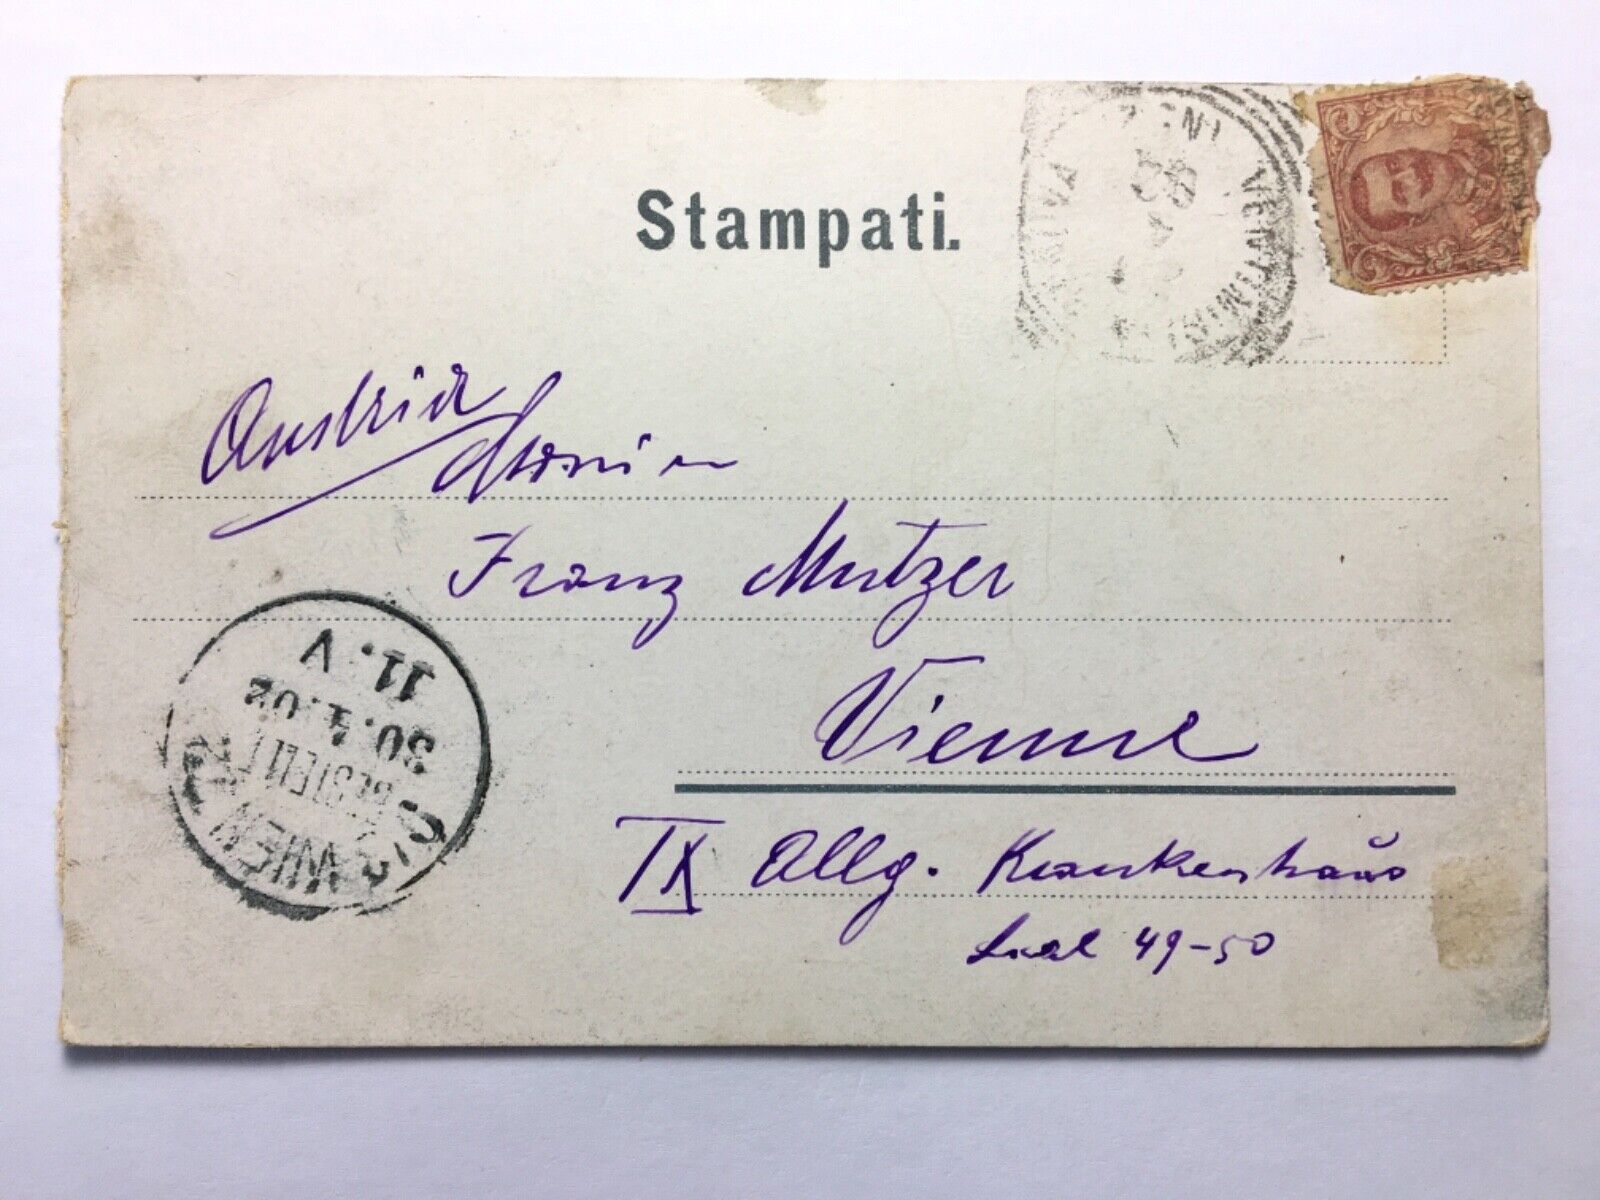 Stampati.
Austria
Franz Mutzer
Vienne
IX Allg. Krankenhaus
Saal 49-50
WIEN
BESTELLT
30.1.02
11.V